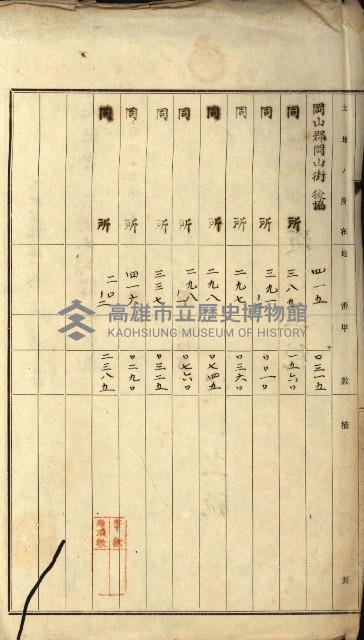 土地ノ所在地 番 甲數 摘 要
岡山郡岡山街後協 四一五 〇三一五
同所 三八九 一五六〇
同所 三九一ノ一 〇〇一〇
同所 二九七 〇三六〇
同所 二九八 〇七四五
同所 二九八ノ一 〇七六〇
同所 三三七 〇三二五
同所 四一六 〇二九〇
同所 二〇二ノ二 二三八五
高雄市立歷史博物館
KAOHSIUNG MUSEUM OF HISTORY